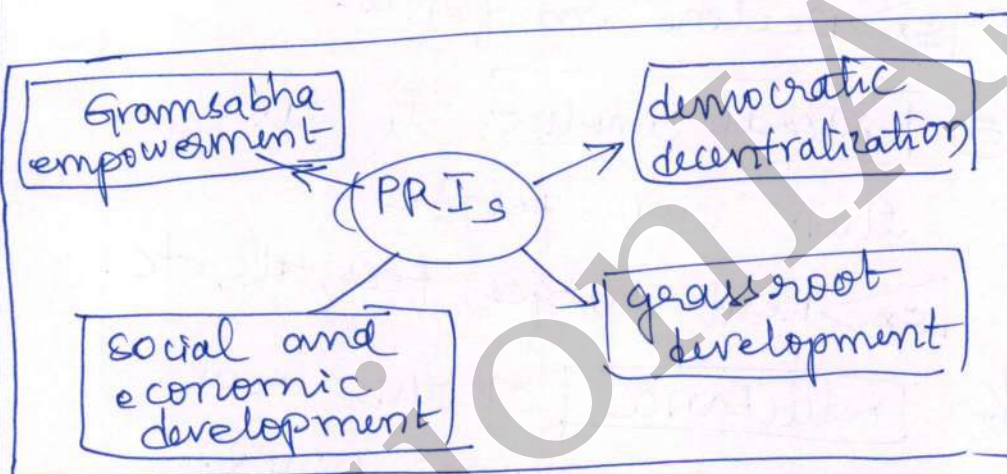 Gramsabha
empowerment
democratic
decentralization
PRIs
social and
economic
development
grassroot
development